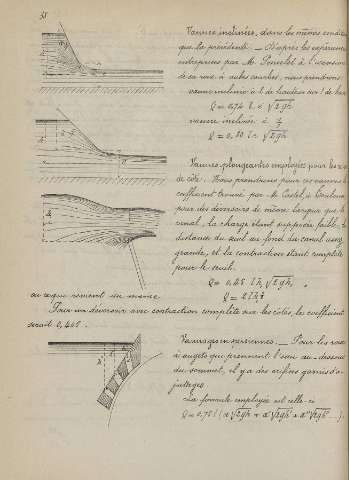 38
Vannes inclinées, dans les mêmes condi
que la précédente. — D'après les expérience
entreprises par M. Poncelet à l'occasion
de sa roue à aubes courbes, nous prendrons:
vanne inclinée à 1 de hauteur sur 1 de bas
Q = 0,74 l. e √2gh
vanne inclinée à
Q = 0,80 l e √2gh
Vannes plongeantes employées pour les
de côté. Nous prendrons pour ces vannes
coefficient trouvé par M. Castel, à Toulouse
pour des déversoirs de même largeur que le
canal, la charge étant supposée faible, la
distance du seuil au fond du canal assez
grande, et la contraction étant complète
pour le seuil.
Q = 0,45 l h √2gh,
ou ce que revient au même
Q = 2 l h
Pour un déversoir avec contraction complète sur les côtés, le coefficient
serait 0,405.
Vannes persiennes. — Pour les roues
à augets qui prennent l'eau au-dessous
du sommet, il y a des orifices garnis d'a-
jutages
La formule employée est celle-ci
Q = 0,75 l (a √2gh + a' √2gh' + a" √2gh" ...).